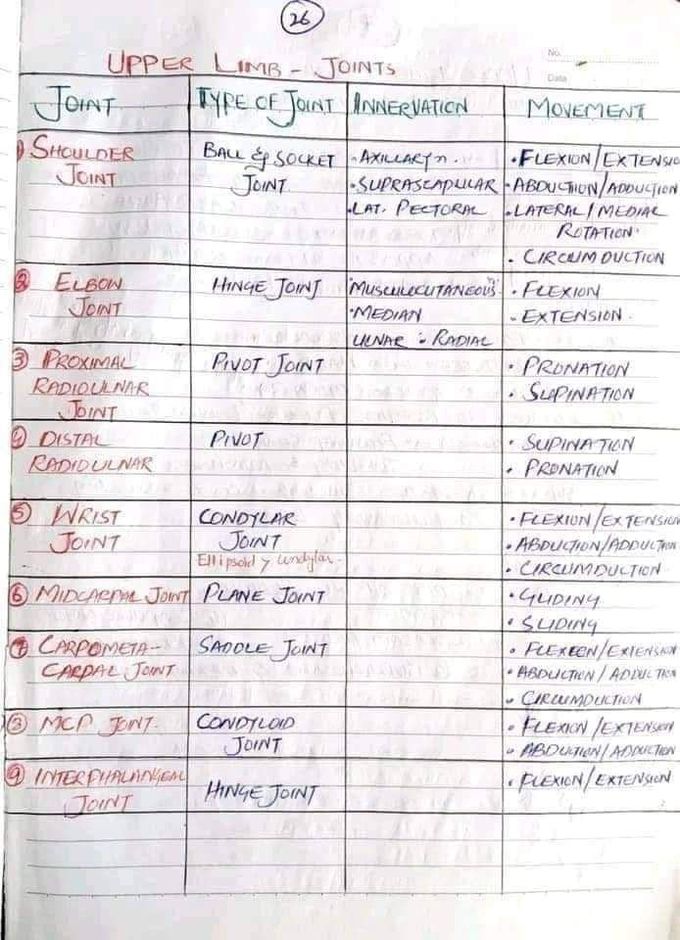 26
No.
Date
UPPER LIMB - JOINTS
JOINT TYPE OF JOINT INNERVATION MOVEMENT
1) SHOULDER JOINT
BALL & SOCKET JOINT
• AXILLARY n.
• SUPRASCAPULAR
• LAT. PECTORAL
• FLEXION/EXTENSIO
• ABDUCTION/ADDUCTION
• LATERAL/MEDIAL
ROTATION.
• CIRCUMDUCTION
2 ELBOW
JOINT
HINGE JOINT
• MUSCULOCUTANEOUS
• MEDIAN
ULNAR - RADIAL
• FLEXION
- EXTENSION.
3 PROXIMAL
RADIOULNAR
JOINT
PIVOT JOINT
• PRONATION
• SUPINATION
4 DISTAL
RADIOULNAR
PIVOT
• SUPINATION
• PRONATION
5 WRIST
JOINT
CONDYLAR
JOINT
Ellipsoid > condylar.
• FLEXION/EXTENSION
• ABDUCTION/ADDUCTION
• CIRCUMDUCTION
6 MIDCARPAL JOINT
PLANE JOINT
• GLIDING
• SLIDING
7 CARPOMETA-
CARPAL JOINT
SADDLE JOINT
• FLEXEEN/EXTENSION
• ABDUCTION/ADDUCTION
• CIRCUMDUCTION
8 MCP JOINT.
CONDYLOID
JOINT
• FLEXION/EXTENSION
• ABDUCTION/ADDUCTION
9 INTERPHALANGEAL
JOINT
HINGE JOINT
• FLEXION/EXTENSION